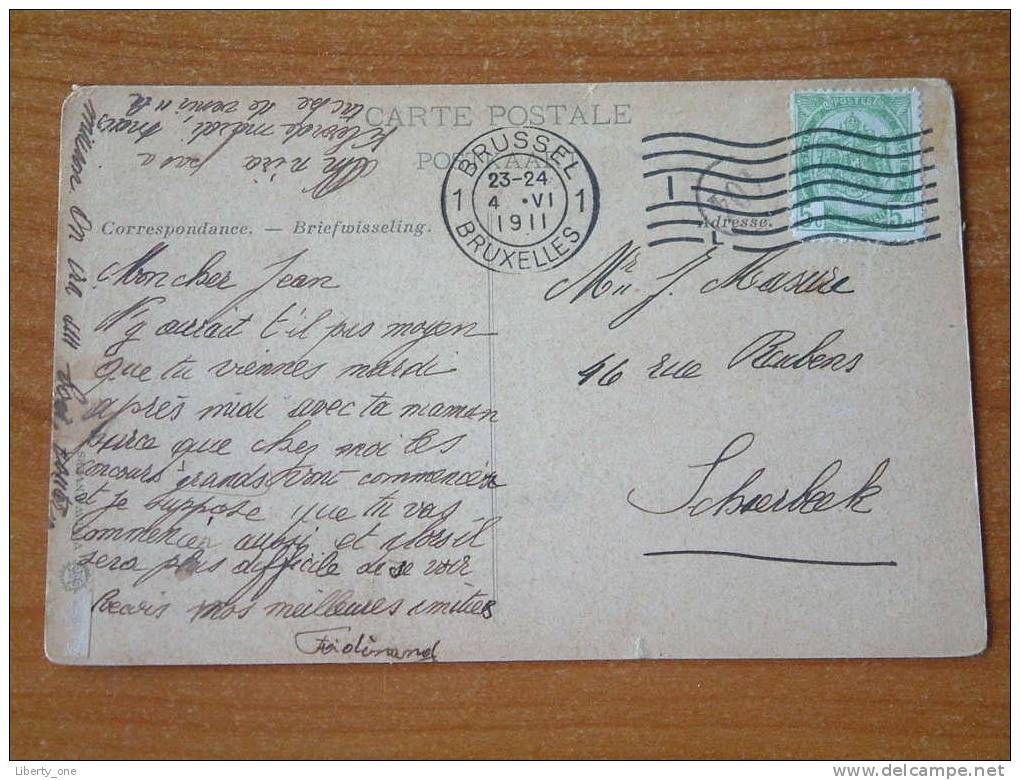 CARTE POSTALE
POSTKAART
BRUSSEL
1 23-24 1
4 · VI
1911
BRUXELLES
POSTES
5c 5c
Correspondance. — Briefwisseling.
Adresse.
Mon cher Jean
N'y aurait t'il pas moyen
que tu viennes mardi
après midi avec ta maman
parce que chez moi les
concours grands vont commencer
et je suppose que tu vas
commencer aussi et alors il
sera plus difficile de se voir
Recois mes meilleures amitiés
Ferdinand
Mr J. Masure
46 rue Rubens
Schaerbeek
On n'ira pas a
mardi mais
tâche de venir a la
maison On ira au
Liberty_one
www.delcampe.net